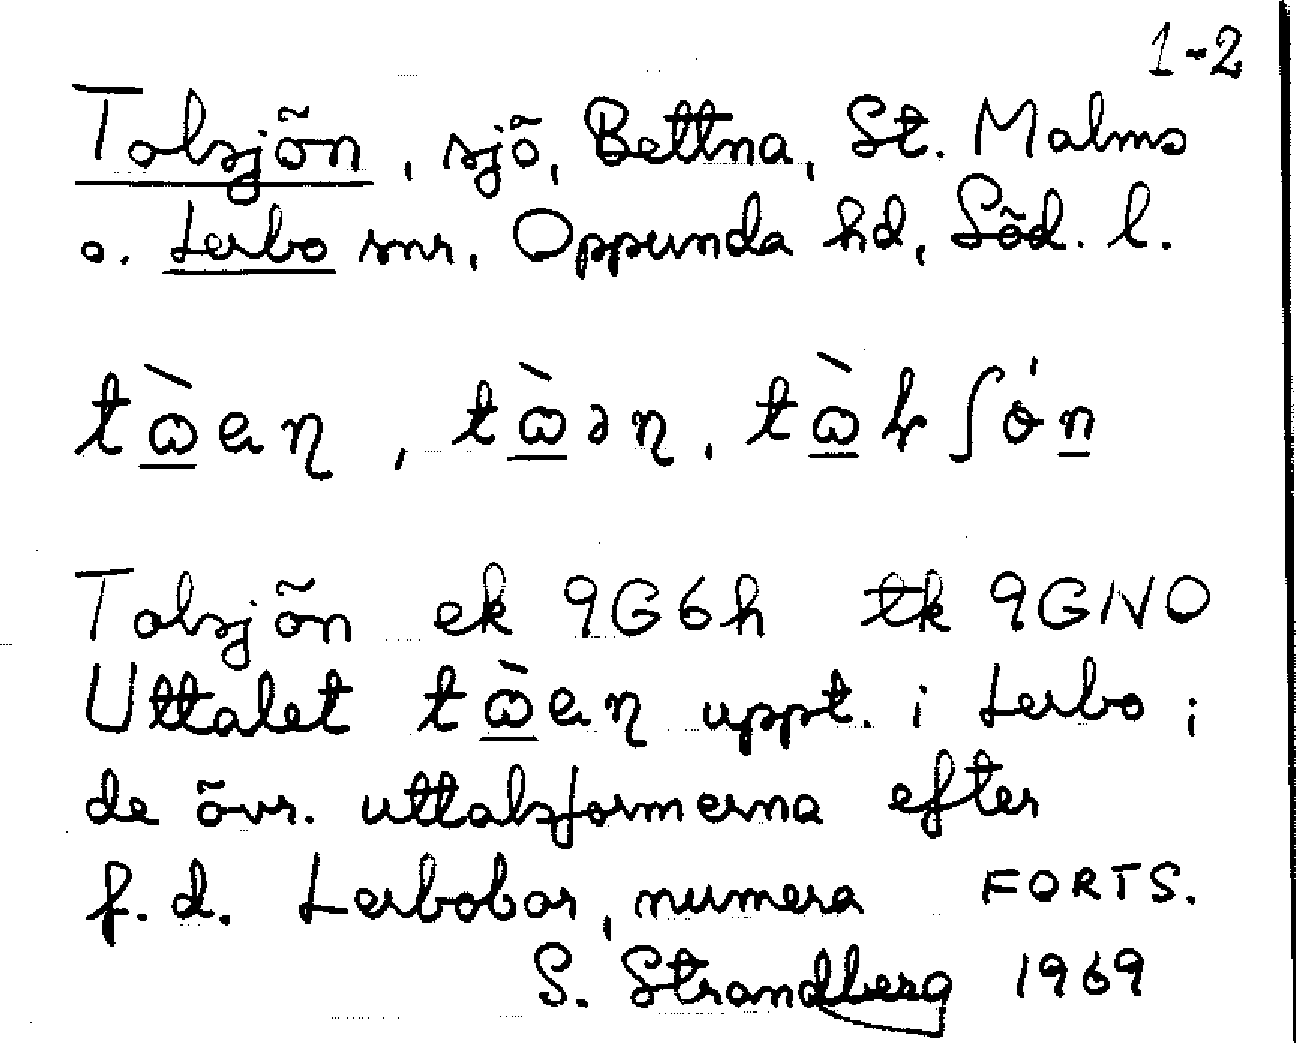 1-2
Tolsjön, sjö, Bettna, St. Malms
o. Lerbo snr, Oppunda hd, Söd. l.
Tolsjön ek 9G6h tk 9GNO
Uttalet uppt. i Lerbo;
de övr. uttalsformerna efter
f.d. Lerbobor, numera FORTS.
S. Strandberg 1969